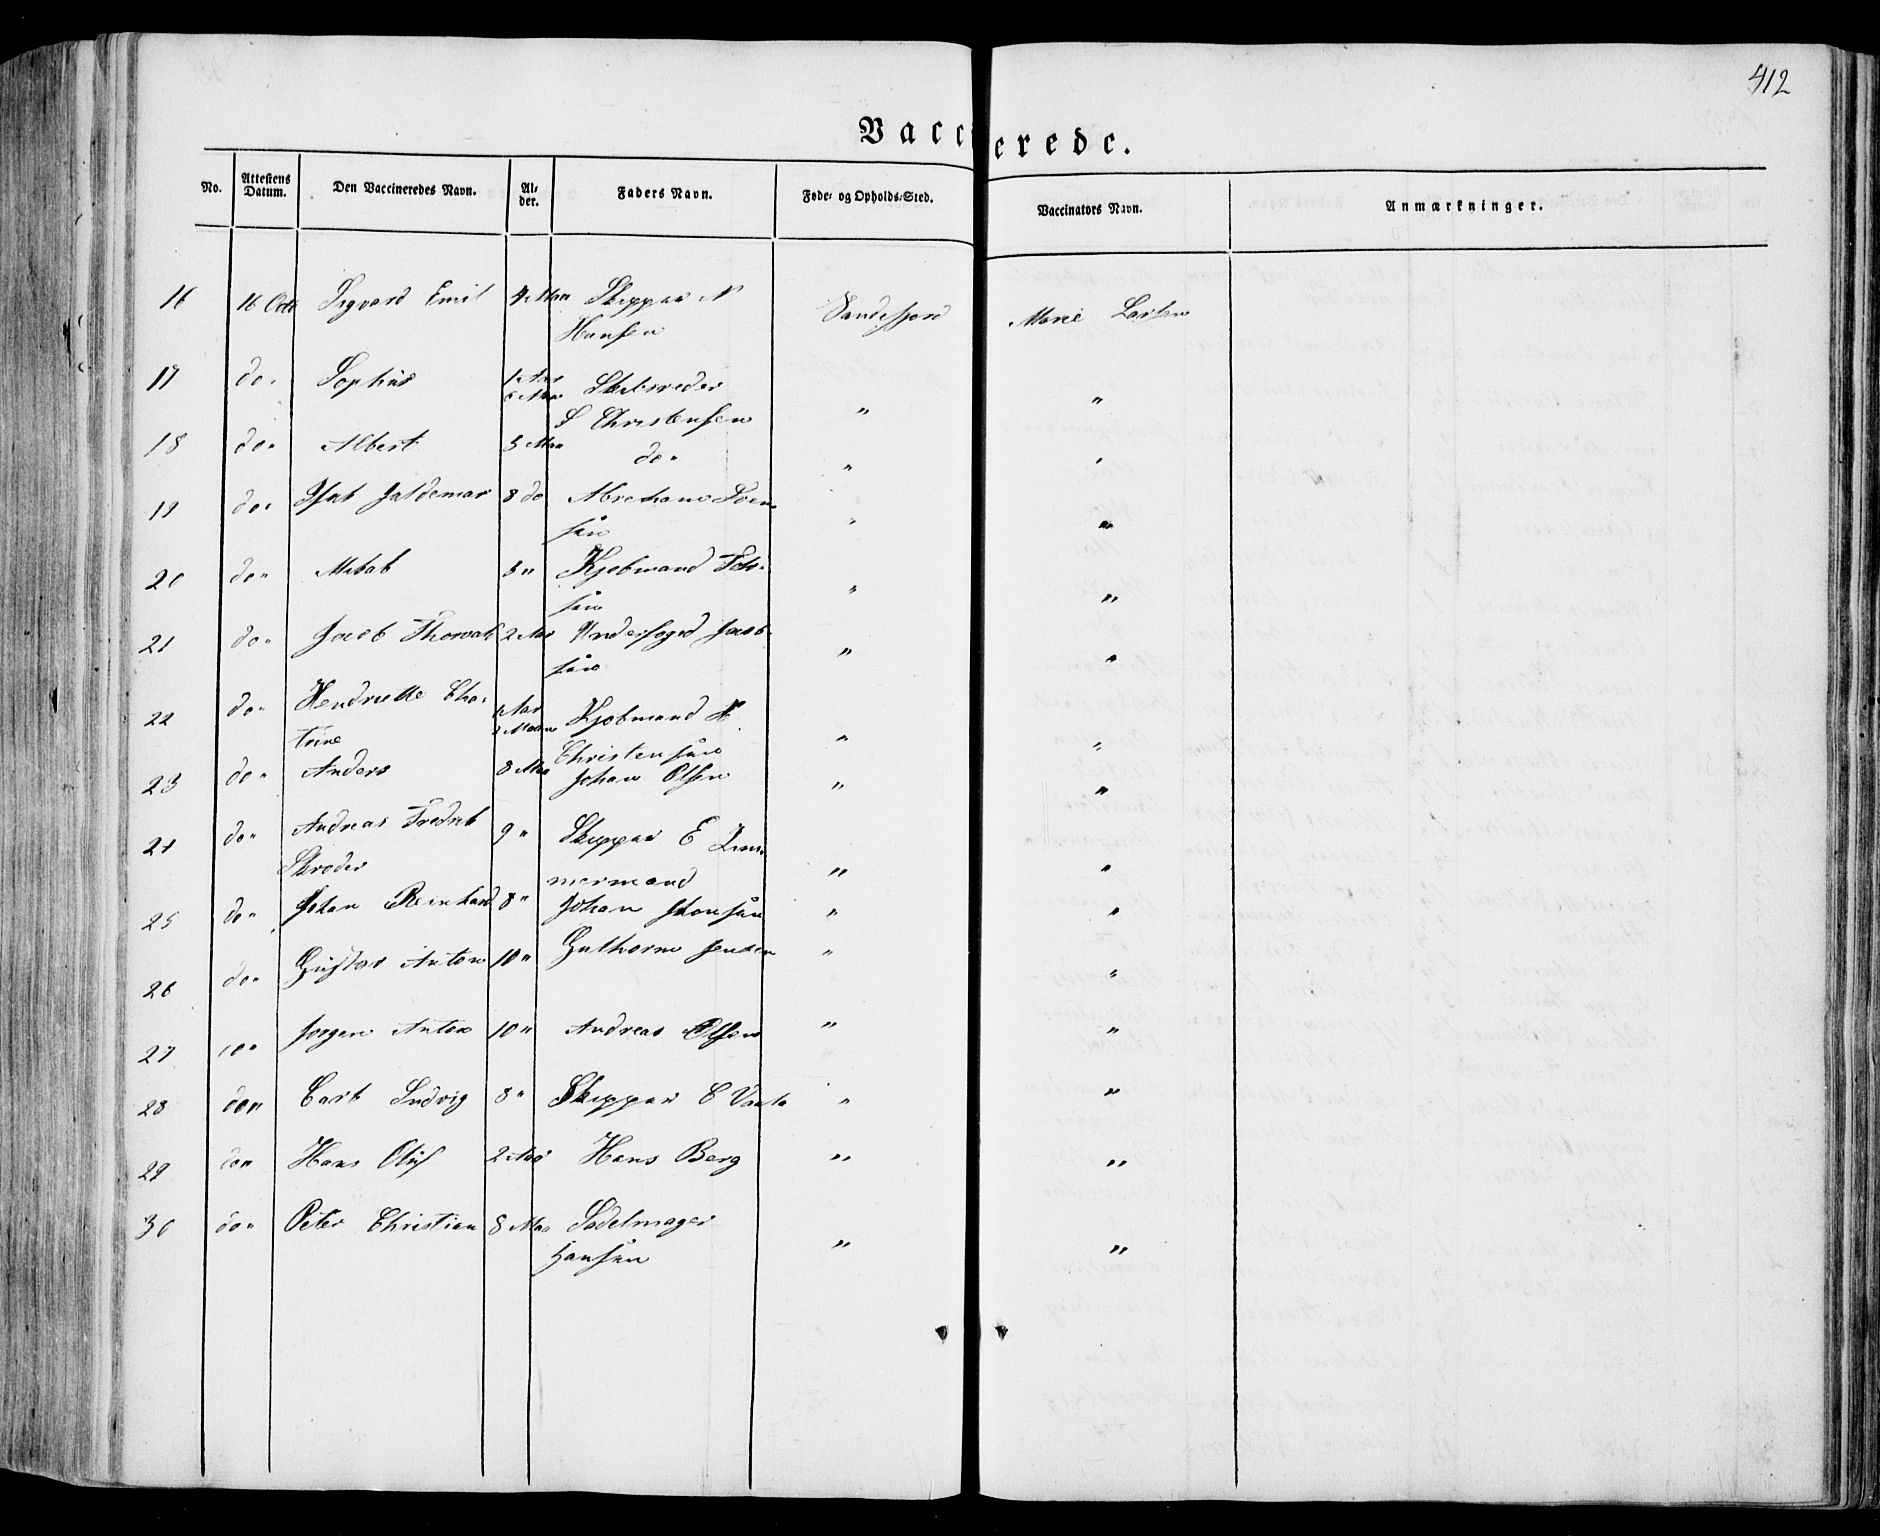 412
Vaccinerede.
No. Attestens Datum. Den Vaccineredes Navn. Al-der. Faders Navn. Føde- og Opholds-Sted. Vaccinators Navn. Anmærkninger.
16 16 Octb Sigvard Emil 4 Maa Skipper N Sandefjord Marie Larsen
Hansen
17 do. Sophus 1 Aar Skibsreder
6 Maa S Christensen " "
18 do " Albert 3 Maa do " " "
19 do. Isak Valdemar 8 do Abraham
sen " "
20 do " 8 " Kjøbmand
sen " "
21 do " Jacob Thorvald 2 Aar Underfoged Jacob-
sen " "
22 do " Hendrikke Cha- 1 Aar Kjøbmand
trine Christensen " "
23 do " Anders 8 Maa Johan Olsen " "
24 do " Andreas Fredrik 9 " Skipper E Zim-
Skrøder mermand " "
25 do " Johan Reinhard 8 " Johan Hansen " "
26 do " Gustav Anton 10 " Guthorm Jensen " "
27 do " Jørgen Anton 10 " Andreas Olsen " "
28 do " Carl Ludvig 8 " Skipper C " "
29 do " Hans Oluf 2 Aar Hans Berg " "
30 do " Peter Christian 8 Maa Sadelmager
Hansen " "